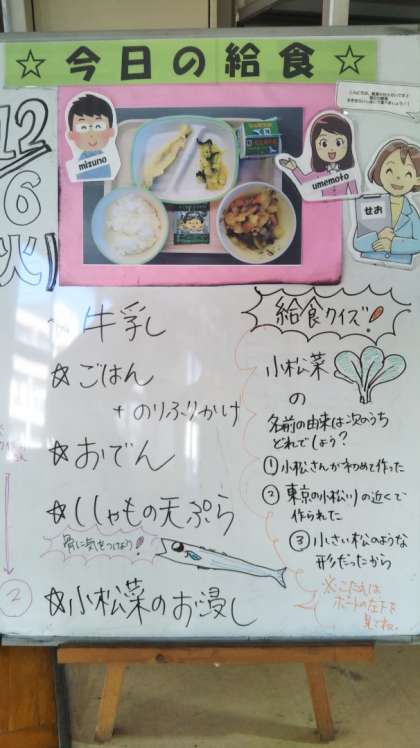 ☆ 今日の給食 ☆
12/6(火)
mizuno
umemoto
せお
牛乳
☆ごはん
+のりふりかけ
☆おでん
☆ししゃもの天ぷら
骨に気をつけよう
☆小松菜のお浸し
給食クイズ!
小松菜
の
名前の由来は次のうち
どれでしょう?
①小松さんが初めて作った
②東京の小松川の近くで
作られた
③小さい松のような
形だったから
※こたえは
ボードの左下を
見てね。
②